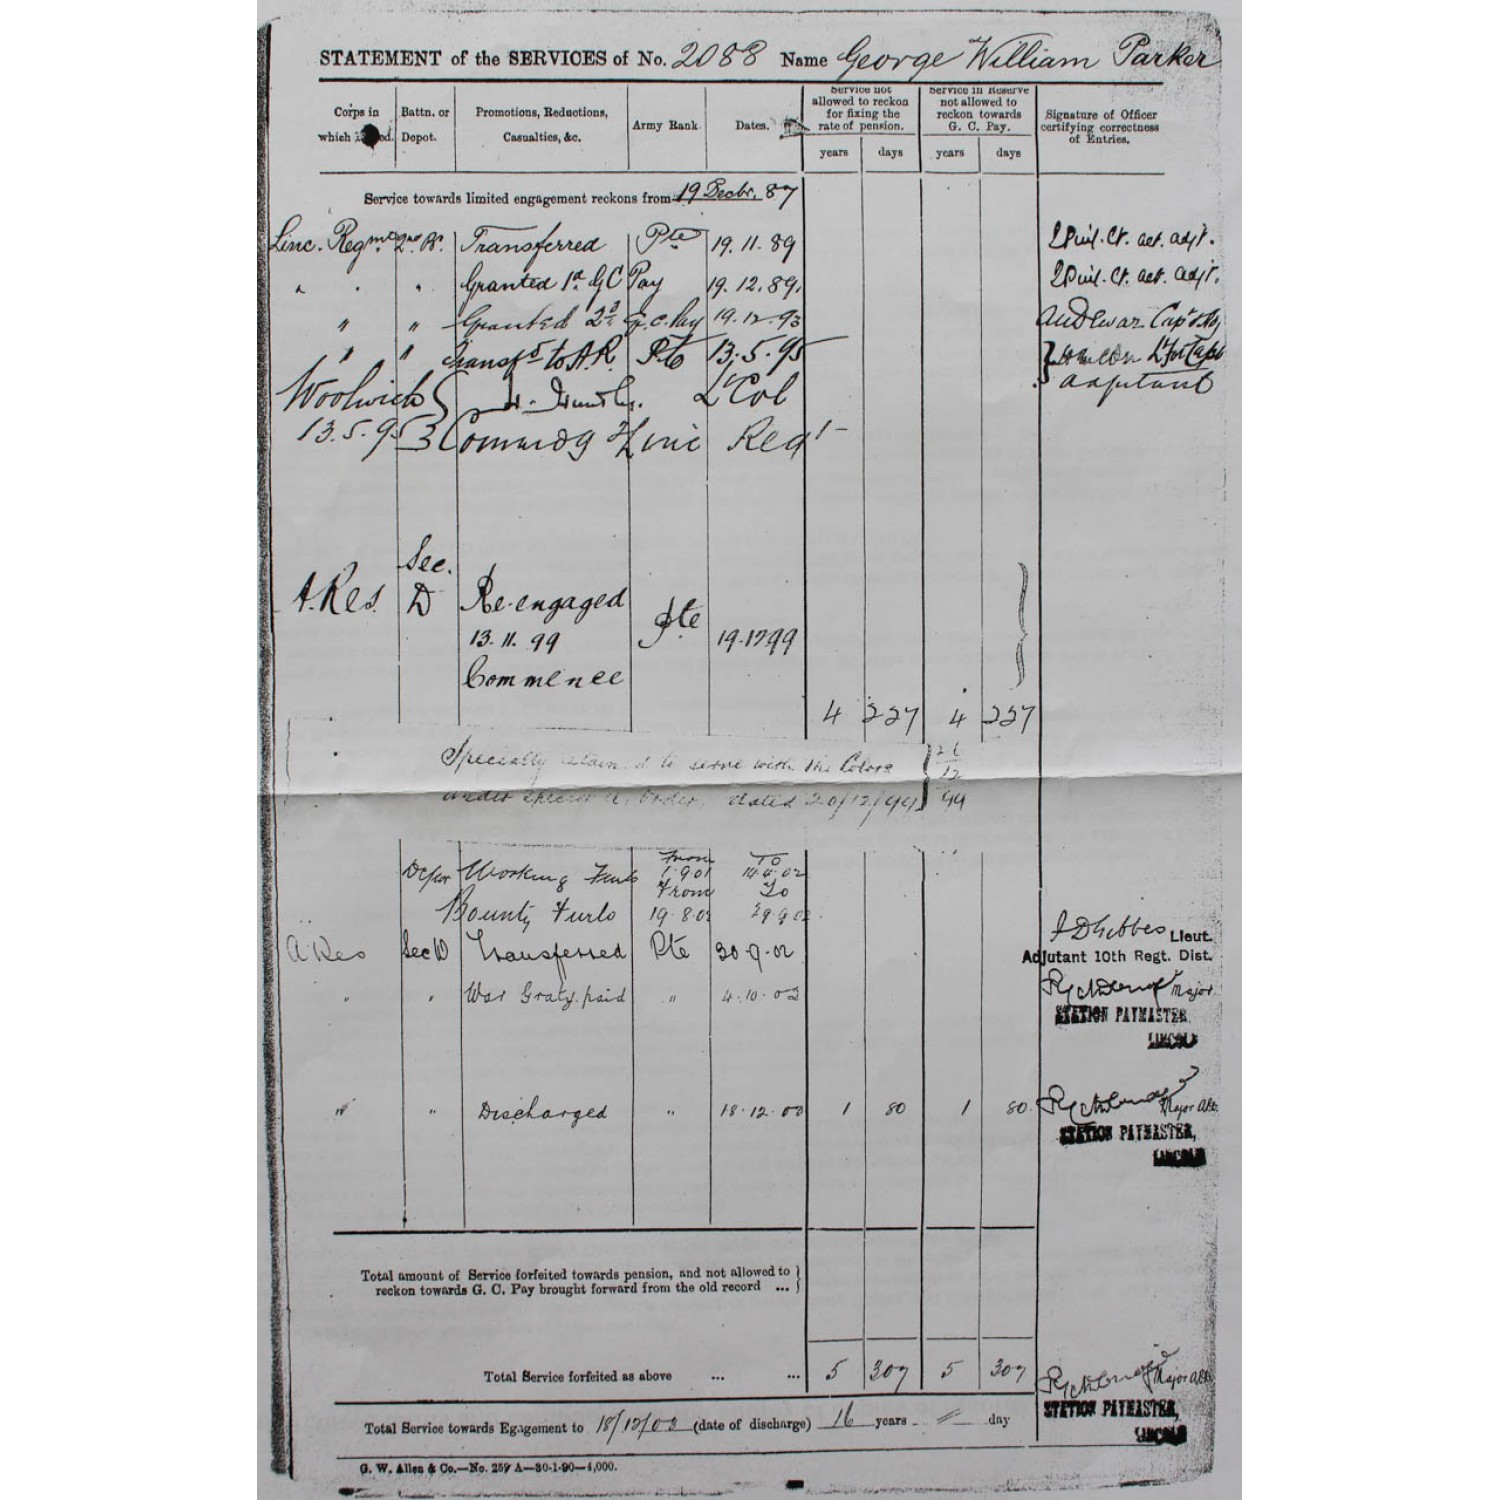 STATEMENT of the SERVICES of No. 2088 Name George William Parker
Corps in which Battn. or Depot. Promotions, Reductions, Casualties, &c. Army Rank. Dates. Service not allowed to reckon for fixing the rate of pension. Service in Reserve not allowed to reckon towards G. C. Pay. Signature of Officer certifying correctness of Entries.
years days years days
Service towards limited engagement reckons from 19 Decbr. 87
Linc. Regmt 2nd B. Transferred Pte 19.11.89 act. adjt.
" " " Granted 1st GC Pay 19.12.89. act. adjt.
" " Granted 2nd G.C. Pay 19.12.93
" " Transfd to A.R. Pte 13.5.95
Woolwich Lt Col adjutant
13.5.95 Commdg Linc Regt
Sec.
A.Res. D Re-engaged Pte
13.11.99 19.12.99
Commence
4 227 4 227
Specially retained to serve with the Colors 21
12
under special A. Order, dated 20/12/99 99
From To
Depot Working Furlo 1.9.01 14.4.02
From To
Bounty Furlo 19.8.02 29.9.02
Lieut.
A Res Sec D Transferred Pte 30.9.02
Adjutant 10th Regt. Dist.
" " War Graty. paid " 4.10.02 Major
STATION PAYMASTER,
LINCOLN
" " Discharged " 18.12.03 1 80 1 80 Major
STATION PAYMASTER,
LINCOLN
Total amount of Service forfeited towards pension, and not allowed to
reckon towards G. C. Pay brought forward from the old record ...
Total Service forfeited as above ... ... 5 307 5 307 Major
STATION PAYMASTER,
LINCOLN
Total Service towards Egagement to 18/12/03 (date of discharge) 16 years day
G. W. Allen & Co.—No. 257 A—30-1-90—4,000.